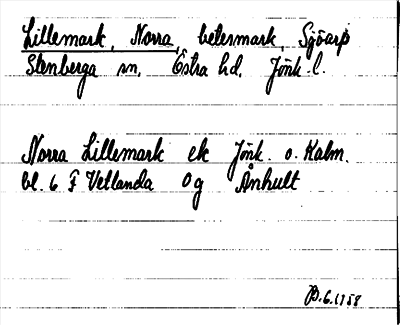 Lillemark, Norra, betesmark, Sjöarp
Stenberga sn, Östra hd, Jönk. l.
Norra Lillemark ek Jönk. o. Kalm.
bl. 6 F Vetlanda og Ånhult
B.G. 1958